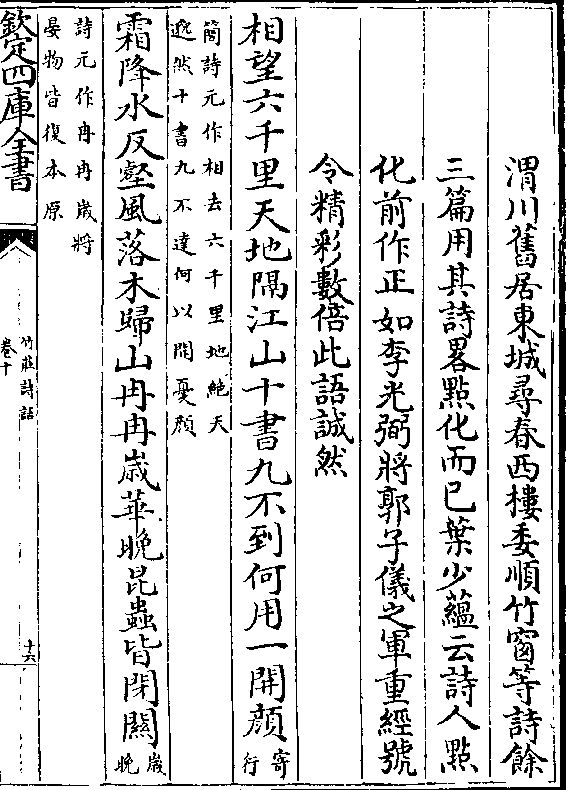 渭川舊居東城尋春西樓委順竹窗等詩餘
三篇用其詩畧㸃化而已葉少蘊云詩人㸃
化前作正如李光弼將郭子儀之軍重經號
令精彩數倍此語誠然
相望六千里天地隔江山十書九不到何用一開顔
寄
行
簡詩元作相去六千里地絶天
邈然十書九不達何以開憂顔
霜降水反壑風落木歸山冉冉歳華晩昆蟲皆閉關
歳
晩
詩元作冉冉歳將
晏物皆復本原
欽定四庫全書
竹莊詩話
卷十
十六